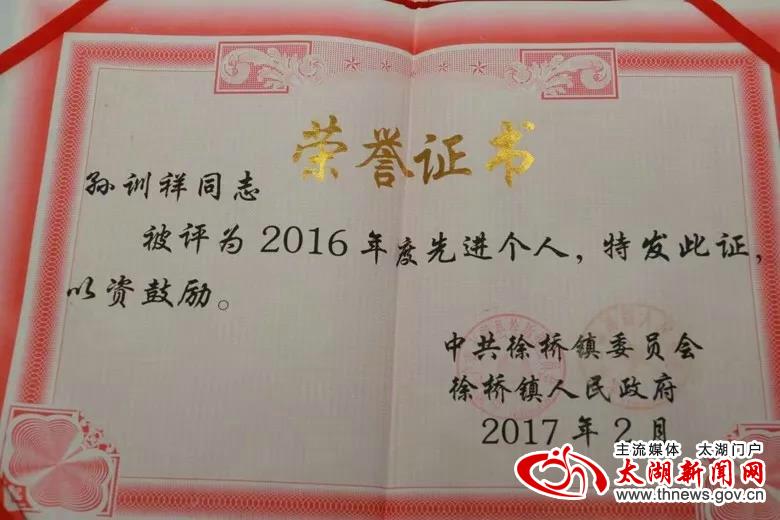 荣誉证书
孙训祥同志
被评为2016年度先进个人，特发此证，
以资鼓励。
中共徐桥镇委员会
徐桥镇人民政府
2017年2月
主流媒体 太湖门户
太湖新闻网
www.thnews.gov.cn